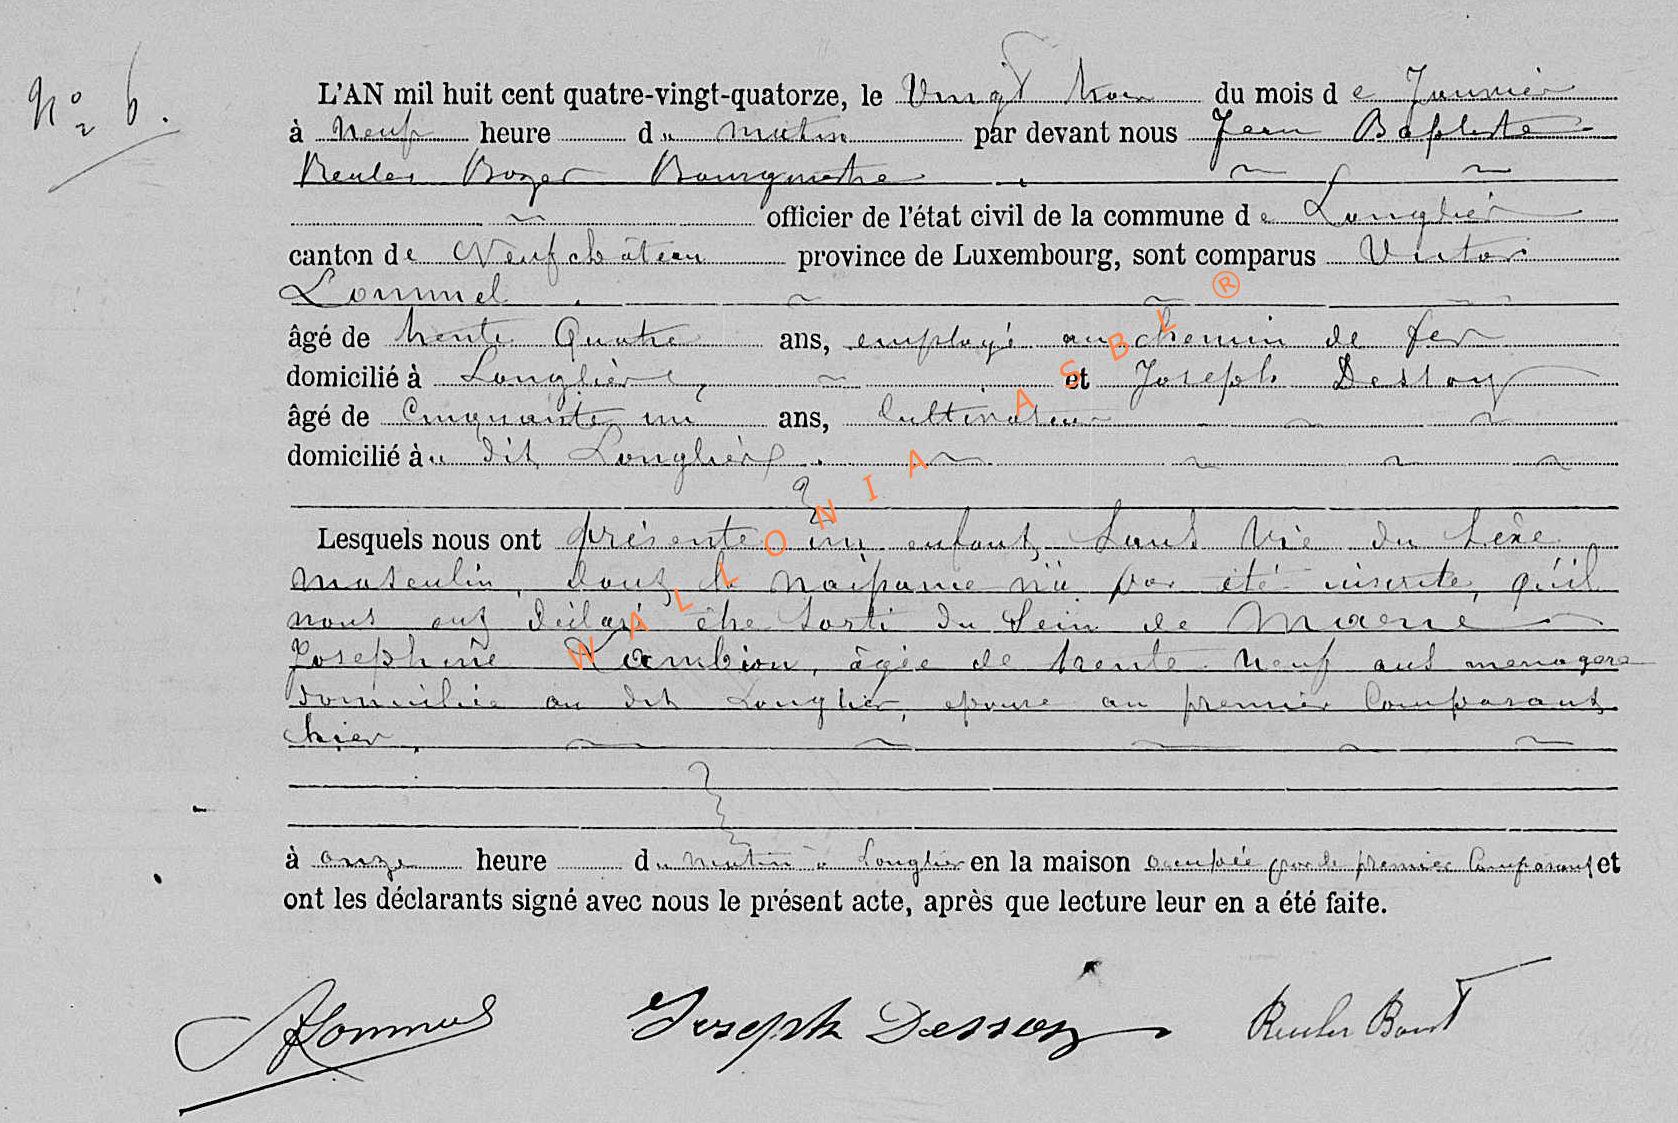 N° 6.
L'AN mil huit cent quatre-vingt-quatorze, le Vingt trois du mois de Janvier
à Neuf heure du matin par devant nous Jean Baptiste
Reuler Bourgmestre
officier de l'état civil de la commune de Longlier
canton de Neufchâteau province de Luxembourg, sont comparus Victor
Lommel
âgé de trente Quatre ans, employé au chemin de fer
domicilié à Longlier, et Joseph Dessoy
âgé de Cinquante un ans, Cultivateur
domicilié àu dit Longlier.
Lesquels nous ont présenté un enfant Sans Vie du Sexe
masculin, dont la naissance n'a pas été inscrite, qu'il
nous ont déclaré être sorti du Sein de Marie
Joséphine Lambion, âgée de trente Neuf ans menagere
domiciliée au dit Longlier, epouse au premier Comparant
hier.
à onze heure du matin à Longlier en la maison occupée par le premier Comparant et
ont les déclarants signé avec nous le présent acte, après que lecture leur en a été faite.
Lommel Joseph Dessoy Reuler
WALLONIA ASBL ®